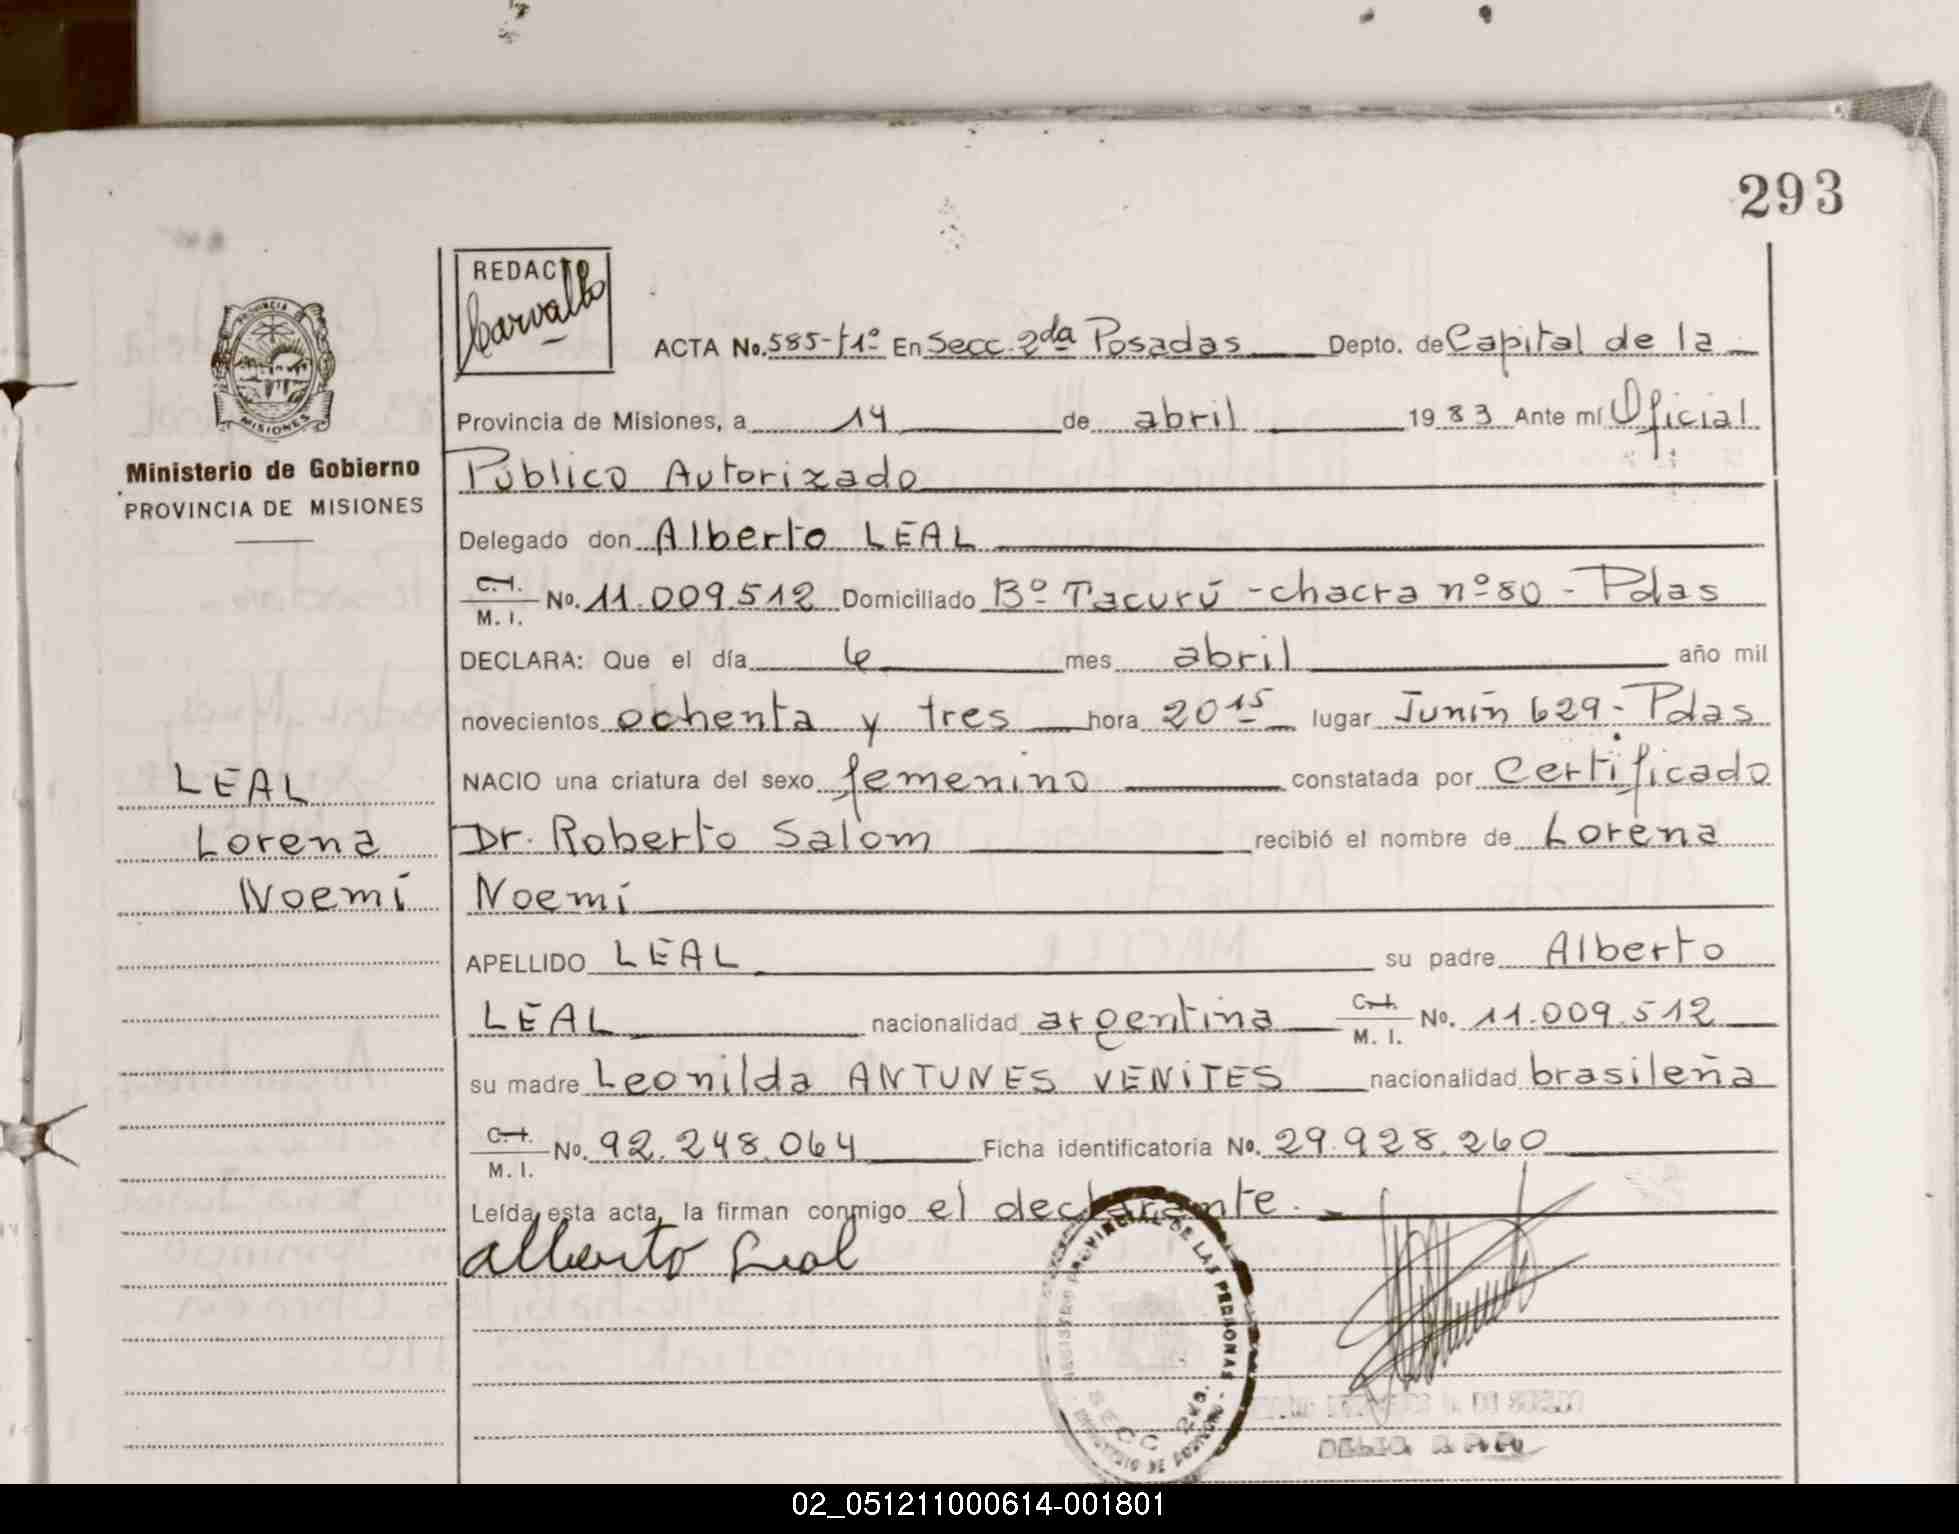 293
REDACTO
Carvallo
ACTA No. 585-T1º En Secc. 2da Posadas Depto. de Capital de la
PROVINCIA DE
MISIONES
Provincia de Misiones, a 14 de abril 1983 Ante mí Oficial
Ministerio de Gobierno
PROVINCIA DE MISIONES
Público Autorizado
Delegado don Alberto LEAL
C.I.
M. I. No. 11.009.512 Domiciliado Bº Tacurú - chacra nº 80 - Pdas
DECLARA: Que el día 6 mes abril año mil
novecientos ochenta y tres hora 20 15 lugar Junín 629 - Pdas
NACIO una criatura del sexo femenino constatada por Certificado
LEAL
Lorena
Noemí
Dr. Roberto Salom recibió el nombre de Lorena
Noemí
APELLIDO LEAL su padre Alberto
LEAL nacionalidad argentina C.I. M. I. No. 11.009.512
su madre Leonilda ANTUNES VENITES nacionalidad brasileña
C.I.
M. I. No. 92.248.064 Ficha identificatoria No. 29.928.260
Leída esta acta, la firman conmigo el declarante.
Alberto Leal
PROVINCIAL DE LAS PERSONAS
SECC 2da.
02_051211000614-001801